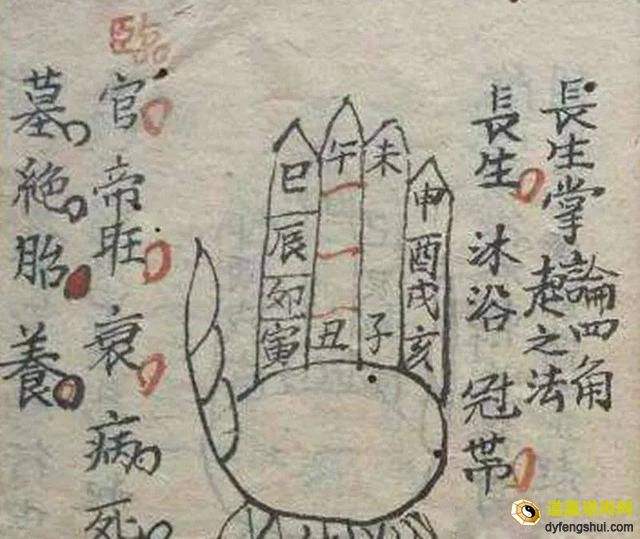 長生掌論四角
起之法
長生 沐浴 冠帶
臨
官 帝旺 衰 病 死
墓 絕 胎 養
巳 午 未 申
辰 酉
卯 戌
寅 丑 子 亥
道易風水网
dyfengshui.com